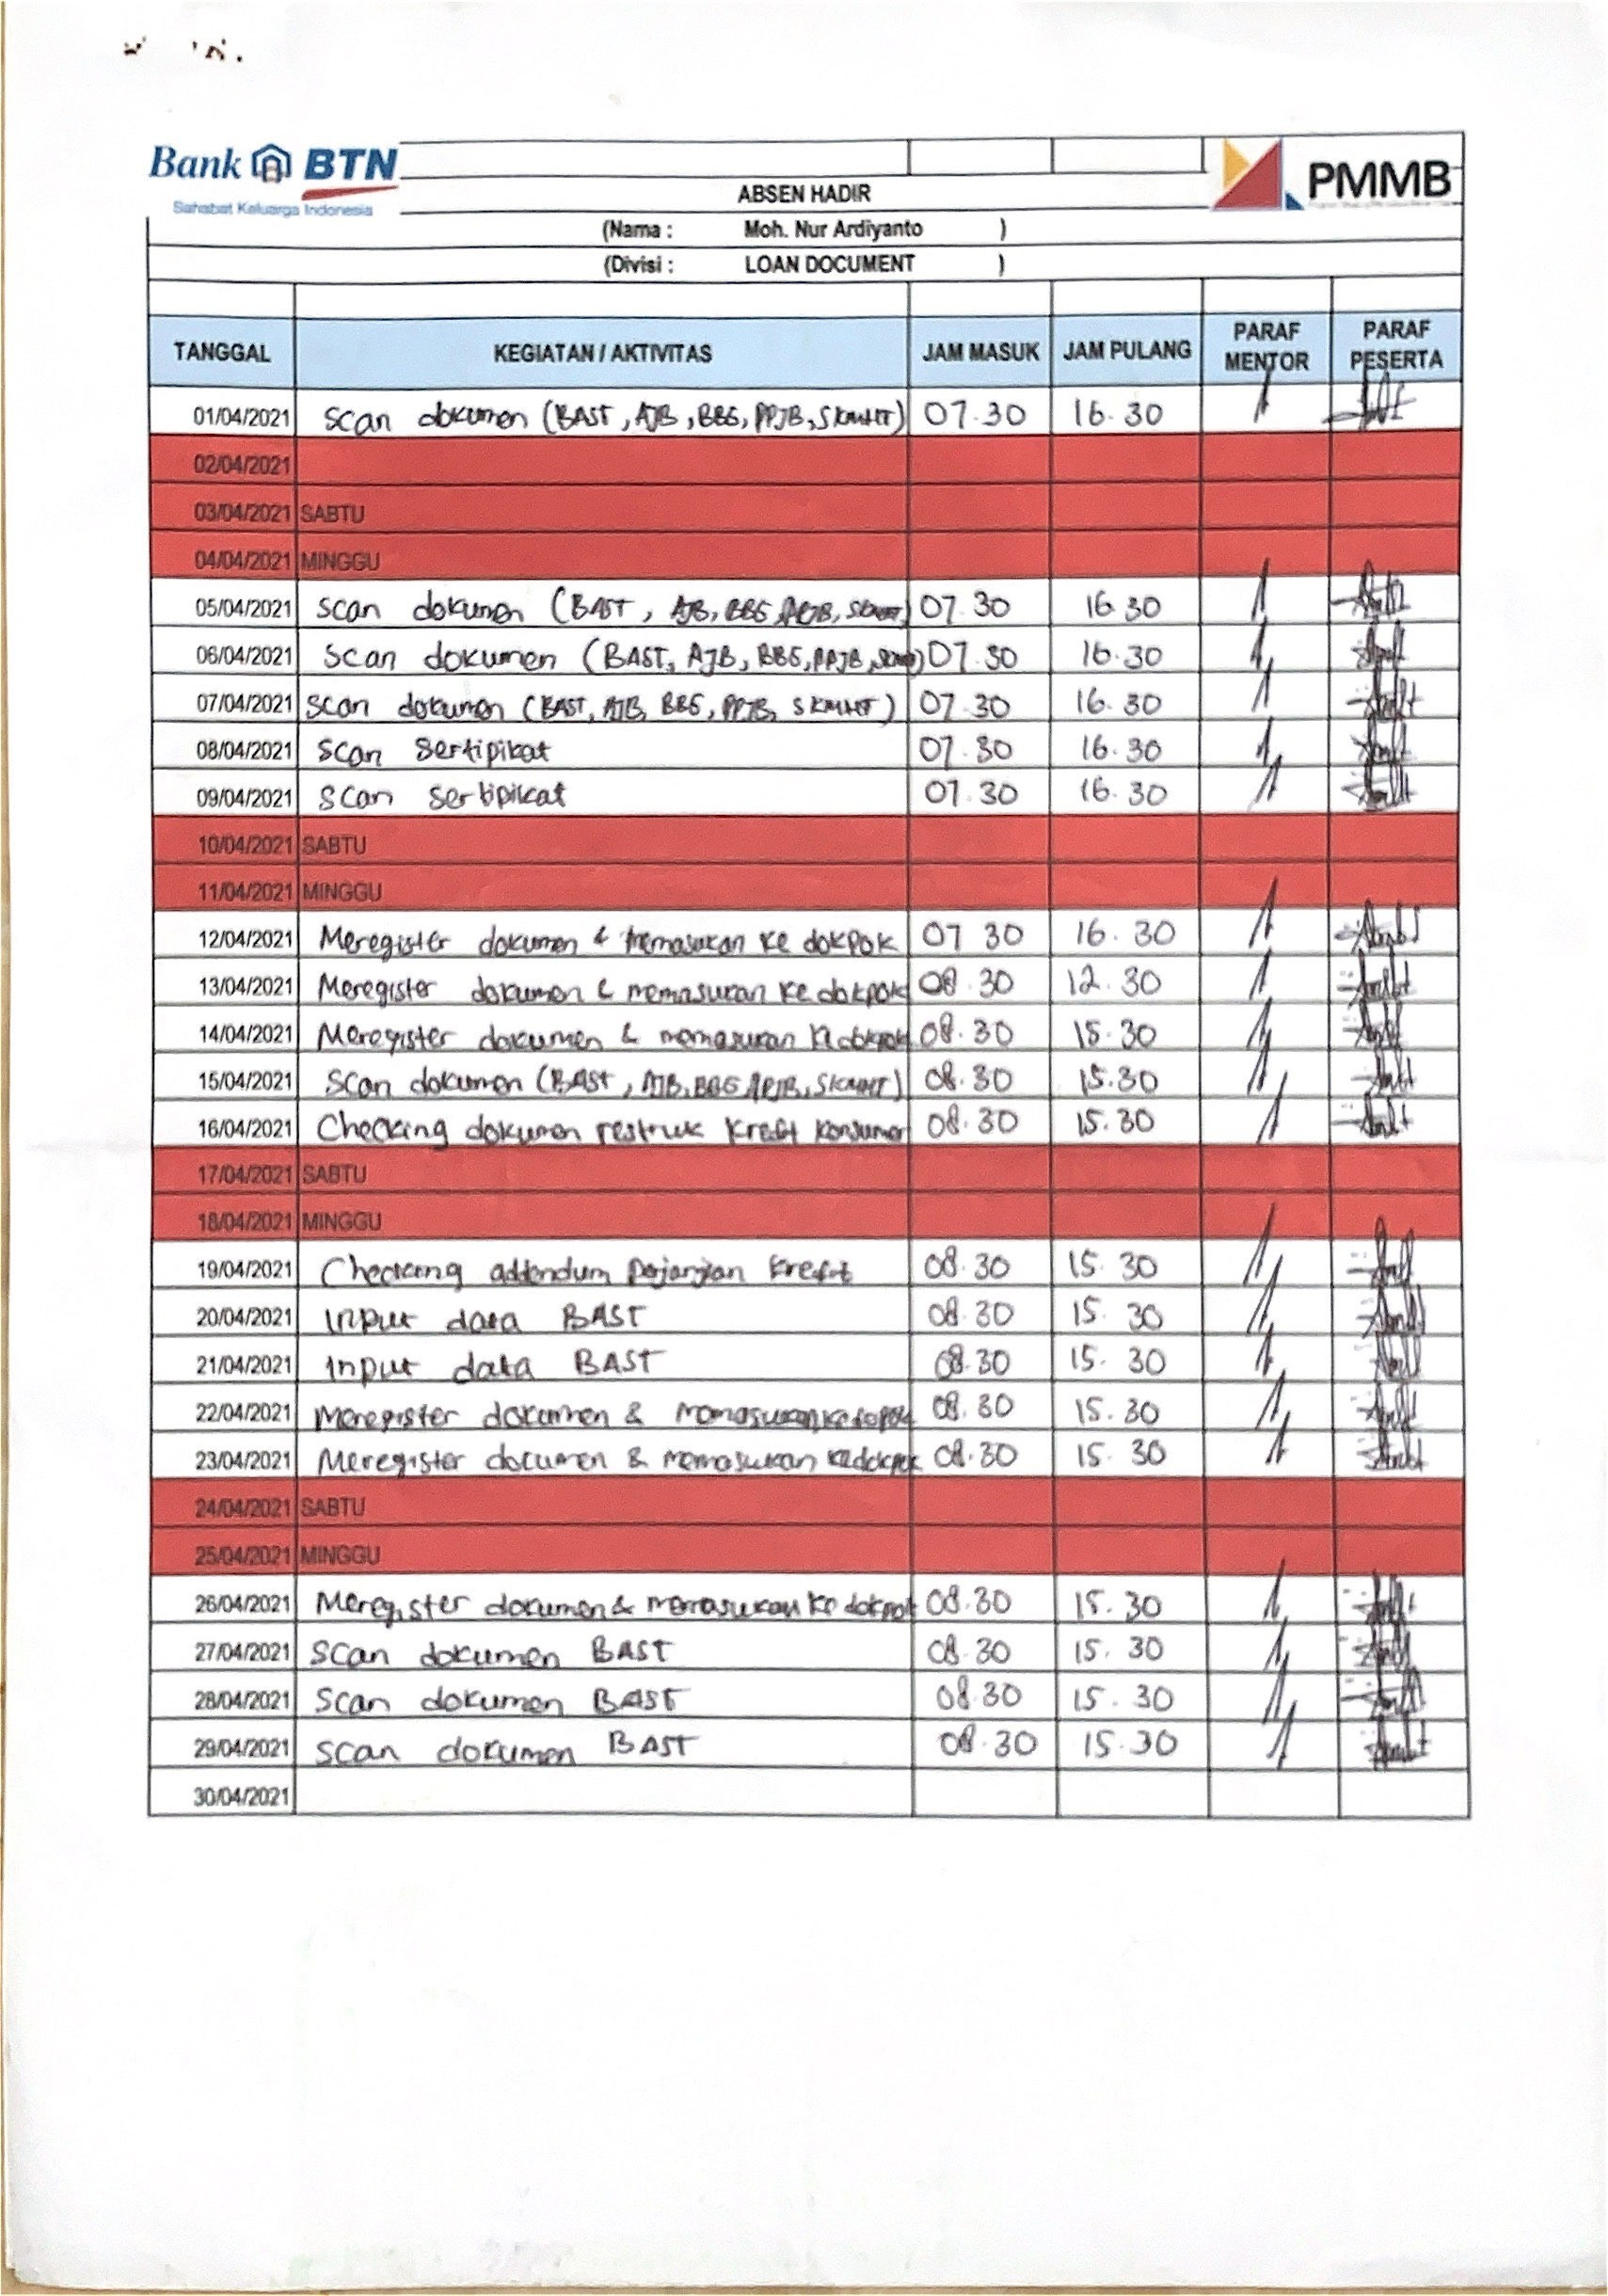 Bank BTN
Sahabat Keluarga Indonesia
PMMB
ABSEN HADIR
(Nama : Moh. Nur Ardiyanto )
(Divisi : LOAN DOCUMENT )
TANGGAL KEGIATAN / AKTIVITAS JAM MASUK JAM PULANG PARAF MENTOR PARAF PESERTA
01/04/2021 Scan dokumen (BAST, AJB, BBG, PPJB, SKMHT) 07.30 16.30
02/04/2021
03/04/2021 SABTU
04/04/2021 MINGGU
05/04/2021 Scan dokumen (BAST, AJB, BBG, PPJB, 07.30 16.30
06/04/2021 Scan dokumen (BAST, AJB, BBG, PPJB, 07.30 16.30
07/04/2021 Scan dokumen (BAST, AJB, BBG, PPJB, SKMHT) 07.30 16.30
08/04/2021 Scan Sertipikat 07.30 16.30
09/04/2021 Scan Sertipikat 07.30 16.30
10/04/2021 SABTU
11/04/2021 MINGGU
12/04/2021 Meregister dokumen & memasukan ke dokpok 07 30 16.30
13/04/2021 Meregister dokumen & memasukan ke dokpok 08.30 12.30
14/04/2021 Meregister dokumen & memasukan ke dokpok 08.30 15.30
15/04/2021 Scan dokumen (BAST, AJB, BBG, PPJB, SKMHT) 08.30 15.30
16/04/2021 Checking dokumen restruk kredit konsumer 08.30 15.30
17/04/2021 SABTU
18/04/2021 MINGGU
19/04/2021 Checking addendum perjanjian kredit 08.30 15.30
20/04/2021 Input data BAST 08.30 15.30
21/04/2021 Input data BAST 08.30 15.30
22/04/2021 Meregister dokumen & memasukan ke 08.30 15.30
23/04/2021 Meregister documen & memasukan ke dokpok 08.30 15.30
24/04/2021 SABTU
25/04/2021 MINGGU
26/04/2021 Meregister dokumen & memasukan ke dokpok 08.30 15.30
27/04/2021 Scan dokumen BAST 08.30 15.30
28/04/2021 Scan dokumen BAST 08.30 15.30
29/04/2021 Scan dokumen BAST 08.30 15.30
30/04/2021